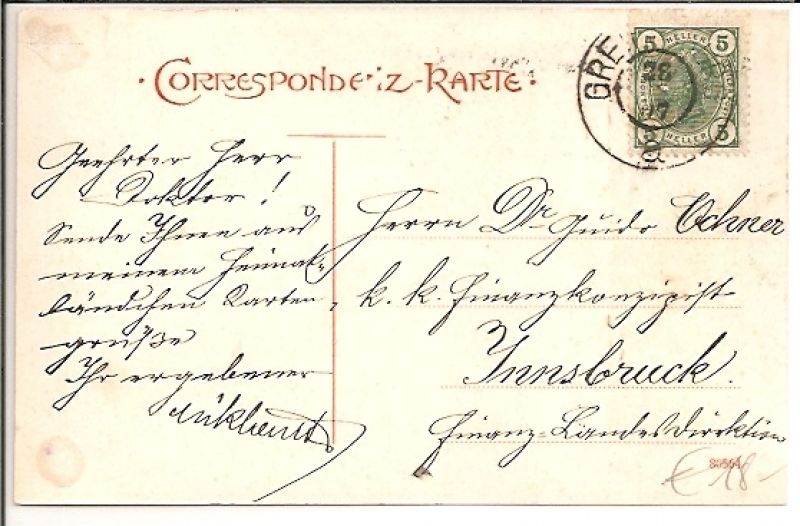 · CORRESPONDENZ-KARTE ·
5 HELLER 5
5 HELLER 5
GRE
28
07
Geehrter Herr
Doktor!
Sende Ihnen aus
meinem Heimat-
ländchen Karten-
grüße
Ihr ergebener
Herrn Dr Guido Ochner
k. k. Finanzkonzipist
Innsbruck.
Finanz-Landesdirektion
€ 18-